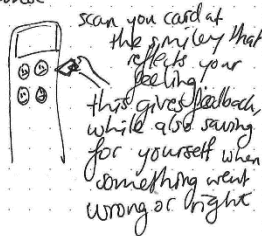 scan you card at
the smiley that
reflects your
feeling
this gives feedback,
while also saving
for yourself when
something went
wrong or right